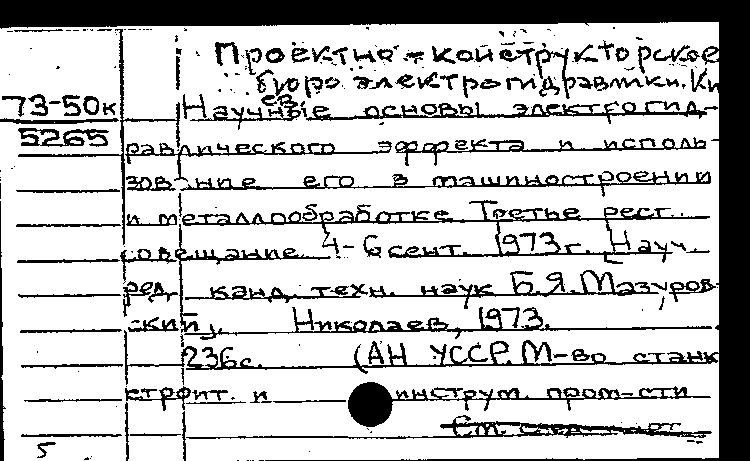 Проектно-конструкторское
бюро электрогидравлики. Ки
73-50к Научные основы электрогид-
5265 равлического эффекта и исполь-
зование его в машиностроении
и металлообработке. Третье респ.
совещание 4-6 сент. 1973г. [Науч.
ред. канд. техн. наук Б.Я. Мазуров-
ский]. Николаев, 1973.
236с. (АН УССР. М-во станк
строит. и инструм. пром-сти
5